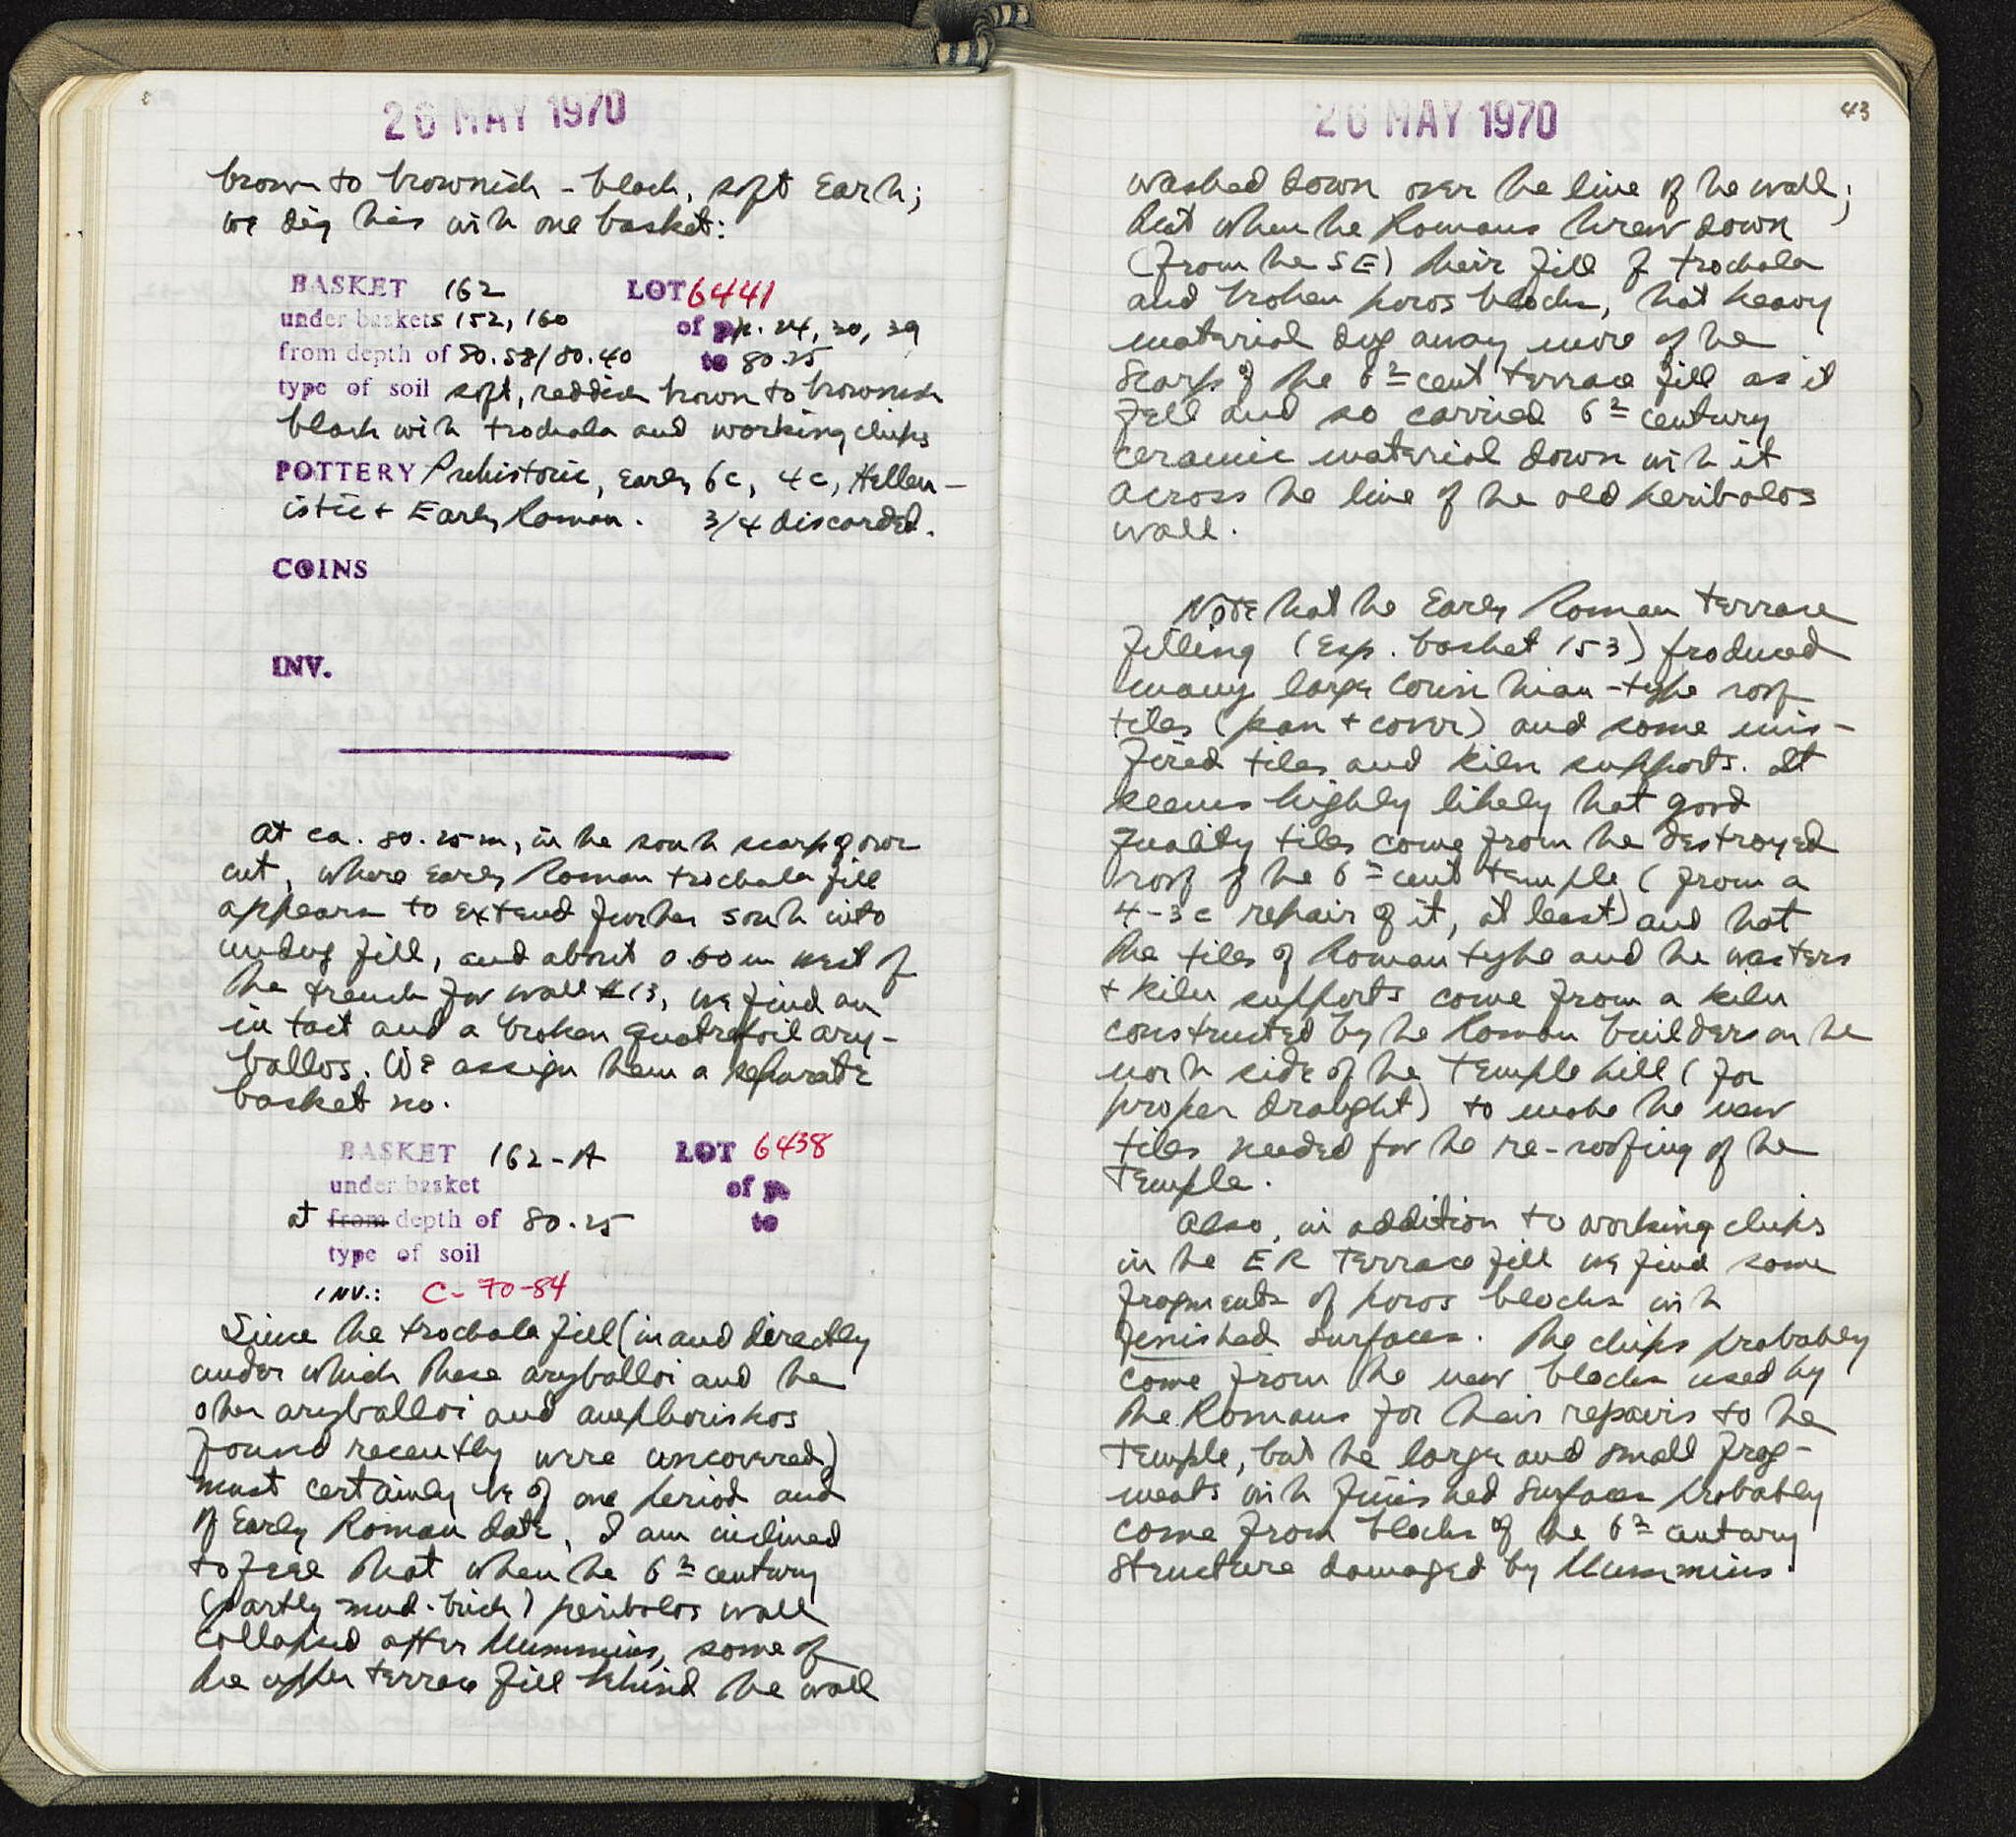 26 MAY 1970
brown to brownish-black, soft earth;
we dig this with one basket:
BASKET 162 LOT 6441
under baskets 152, 160 of pp. 24, 30, 39
from depth of 80.58/80.40 to 80.25
type of soil soft, reddish brown to brownish
black with trochala and working chips
POTTERY Prehistoric, Early 6c, 4c, Hellen-
istic + Early Roman. 3/4 discarded.
COINS
INV.
At ca. 80.25m, in the south scarp of our
cut, where Early Roman trochala fill
appears to extend further south into
undug fill, and about 0.60m west of
the trench for wall #13, we find an
intact and a broken quatrefoil ary-
ballos. We assign them a separate
basket no.
BASKET 162-A LOT 6438
under basket of p.
at from depth of 80.25 to
type of soil
INV.: C-70-84
Since the trochala fill (in and directly
under which these aryballoi and the
other aryballoi and amphoriskos
found recently were uncovered)
must certainly be of one period and
of Early Roman date, I am inclined
to feel that when the 6th century
(partly mud-brick) peribolos wall
collapsed after Mummius, some of
the upper terrace fill behind the wall
26 MAY 1970
43
washed down over the line of the wall;
but when the Romans threw down
(from the SE) their fill of trochala
and broken poros blocks, that heavy
material dug away more of the
scarp of the 6th cent terrace fill as it
fell and so carried 6th century
ceramic material down with it
across the line of the old peribolos
wall.
NOTE that the Early Roman terrace
filling (esp. basket 153) produced
many large Corinthian-type roof
tiles (pan + cover) and some mis-
fired tiles and kiln supports. It
seems highly likely that good
quality tiles come from the destroyed
roof of the 6th cent temple (from a
4-3c repair of it, at least) and that
the tiles of Roman type and the wasters
+ kiln supports come from a kiln
constructed by the Roman builders on the
north side of the Temple hill (for
proper draught) to make the new
tiles needed for the re-roofing of the
Temple.
Also, in addition to working chips
in the ER terrace fill we find some
fragments of poros blocks with
finished surfaces. The chips probably
come from the new blocks used by
the Romans for their repairs to the
Temple, but the large and small frag-
ments with finished surfaces probably
come from blocks of the 6th century
structure damaged by Mummius.